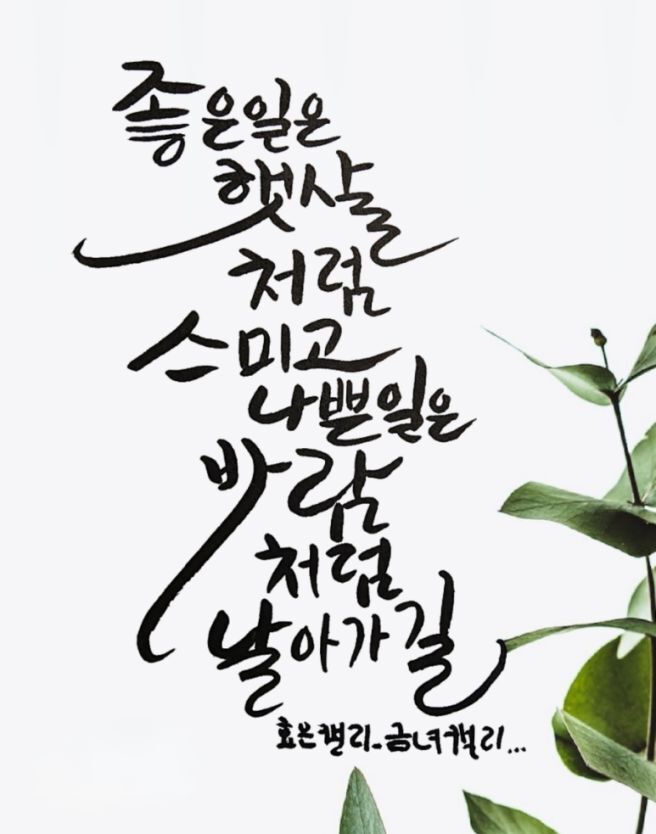 좋은일은
햇살
처럼
스미고
나쁜일은
바람
처럼
날아가길
효은캘리-금녀캘리...